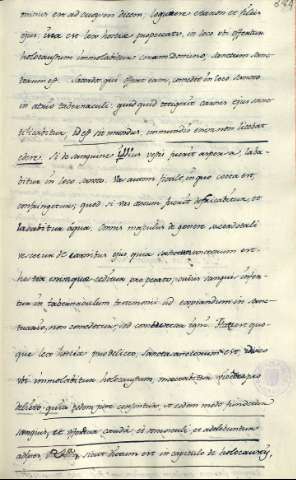 minus est ad eum dicens; loquere Aaron et filiis
ejus; ista est lex hostiæ pro peccato, in loco ubi offertur
holocaustum immolabitur coram Domino; sanctum sanc-
torum est. Sacerdos qui offert eam, comedet in loco sancto
in atrio tabernaculi: quidquid tetigerit carnes ejus sanc-
tificabitur. Id est mundus, immundis enim non licebat
Si de sanguine illius vestis fuerit aspersa, lava-
bitur in loco sancto. Vas autem fictile, in quo cocta est,
confringetur; quod si vas æneum fuerit defricabitur, et
lavabitur aqua. Omnis masculus de genere sacerdotali
vescetur de carnibus ejus quia sanctum sanctorum est.
hostia enim quæ ceditur pro peccato, cujus sanguis infer-
tur in tabernaculum testimonii ad expiandum in sanc-
tuario, non comedetur, sed comburetur igni. Hæc est quo-
que lex hostiæ pro delicto, sancta sanctorum est, idcirco
ubi immolabitur holocaustum, mactabitur victima pro
delicto:
sanguis, et offeretur cauda
adeps, sicut dictum est in capitulo de holocausto,